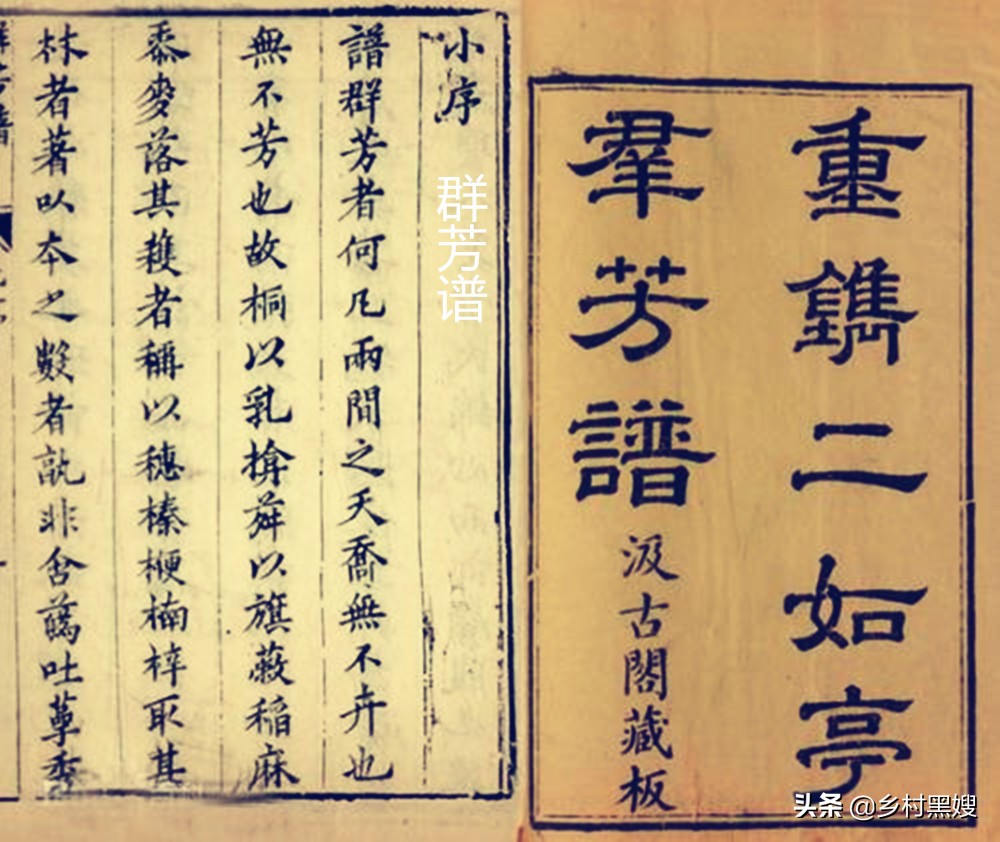 重鐫二如亭
羣芳譜
汲古閣藏板
小序
群芳谱
譜群芳者何凡兩間之夭喬無不卉也
無不芳也故桐以乳揜蕣以旗蔽稲麻
黍麥落其穫者稱以穗榛楩楠梓取其
材者著以本之數者孰非含蕅吐蕚委
头条 @乡村黑嫂